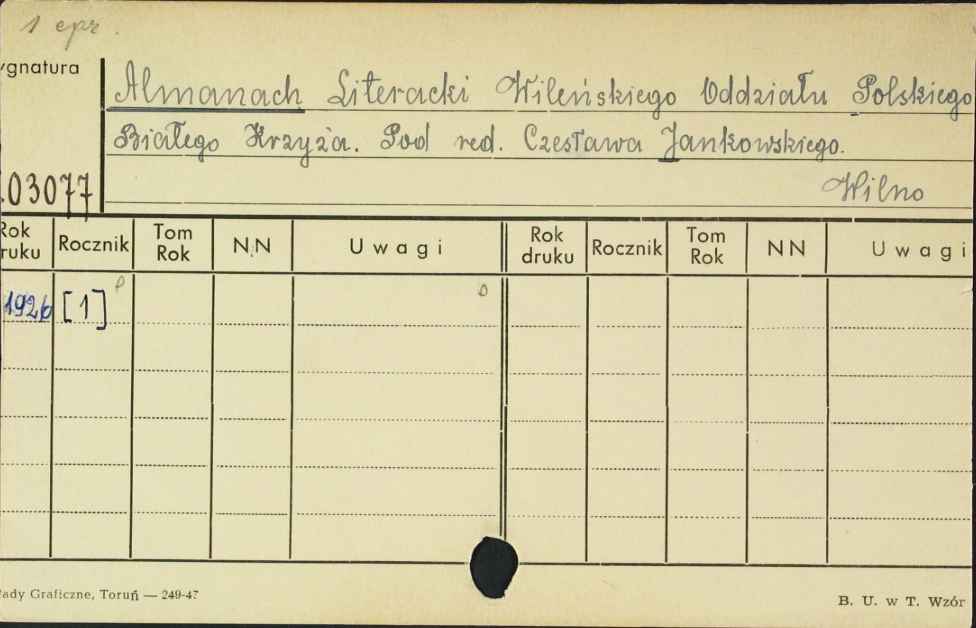 1 egz.
ygnatura
Almanach Literacki Wileńskiego Oddziału Polskiego
Białego Krzyża. Pod red. Czesława Jankowskiego.
03077
Wilno
Rok druku Rocznik Tom Rok N.N Uwagi Rok druku Rocznik Tom Rok NN Uwagi
1926 [1]
łady Graficzne, Toruń — 249-47
B. U. w T. Wzór